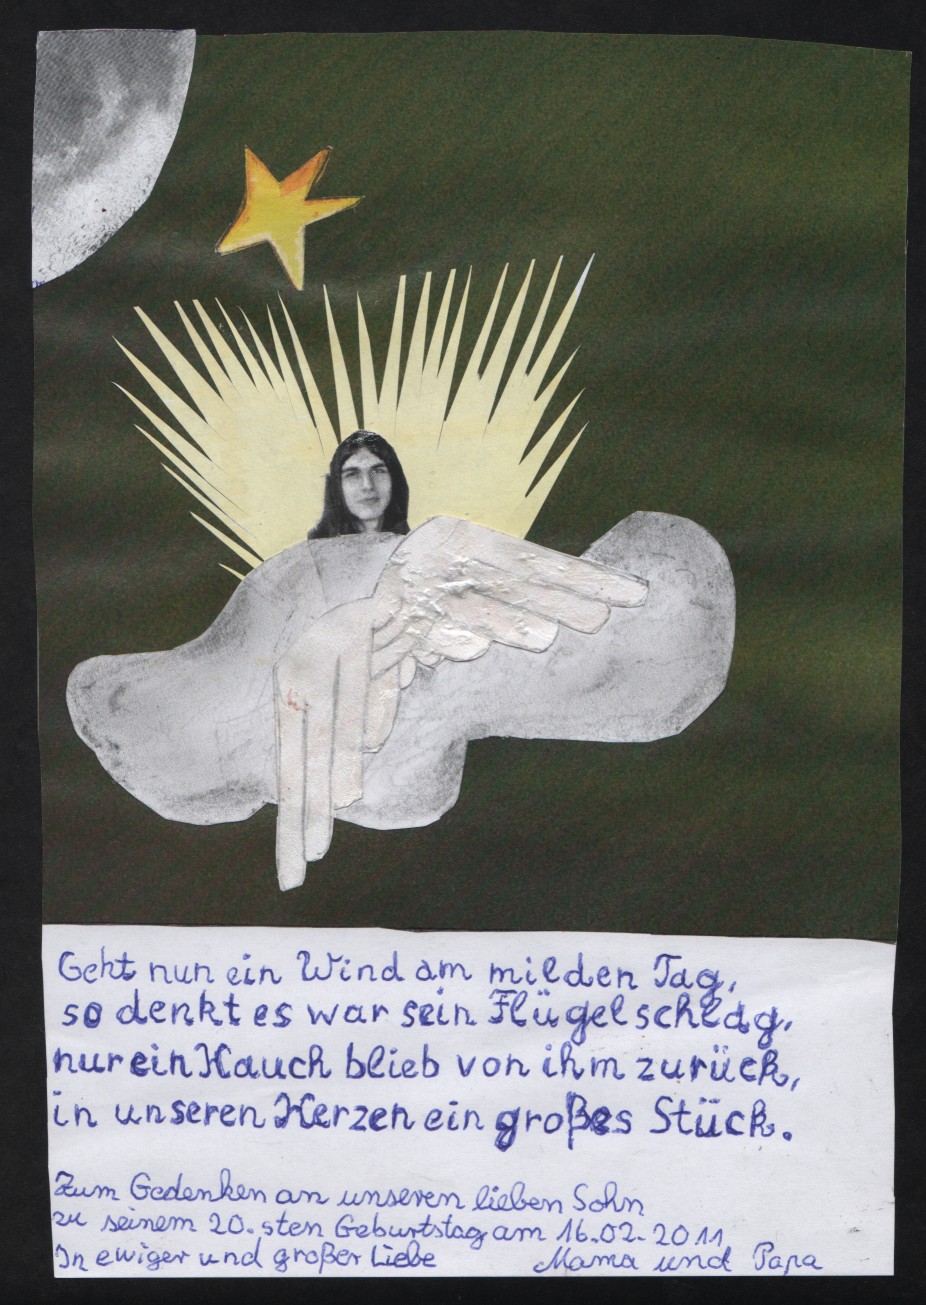 Geht nun ein Wind am milden Tag,
so denkt es war sein Flügelschlag,
nur ein Hauch blieb von ihm zurück,
in unseren Herzen ein großes Stück.
Zum Gedenken an unseren lieben Sohn
zu seinem 20.sten Geburtstag am 16.02.2011
In ewiger und großer Liebe Mama und Papa